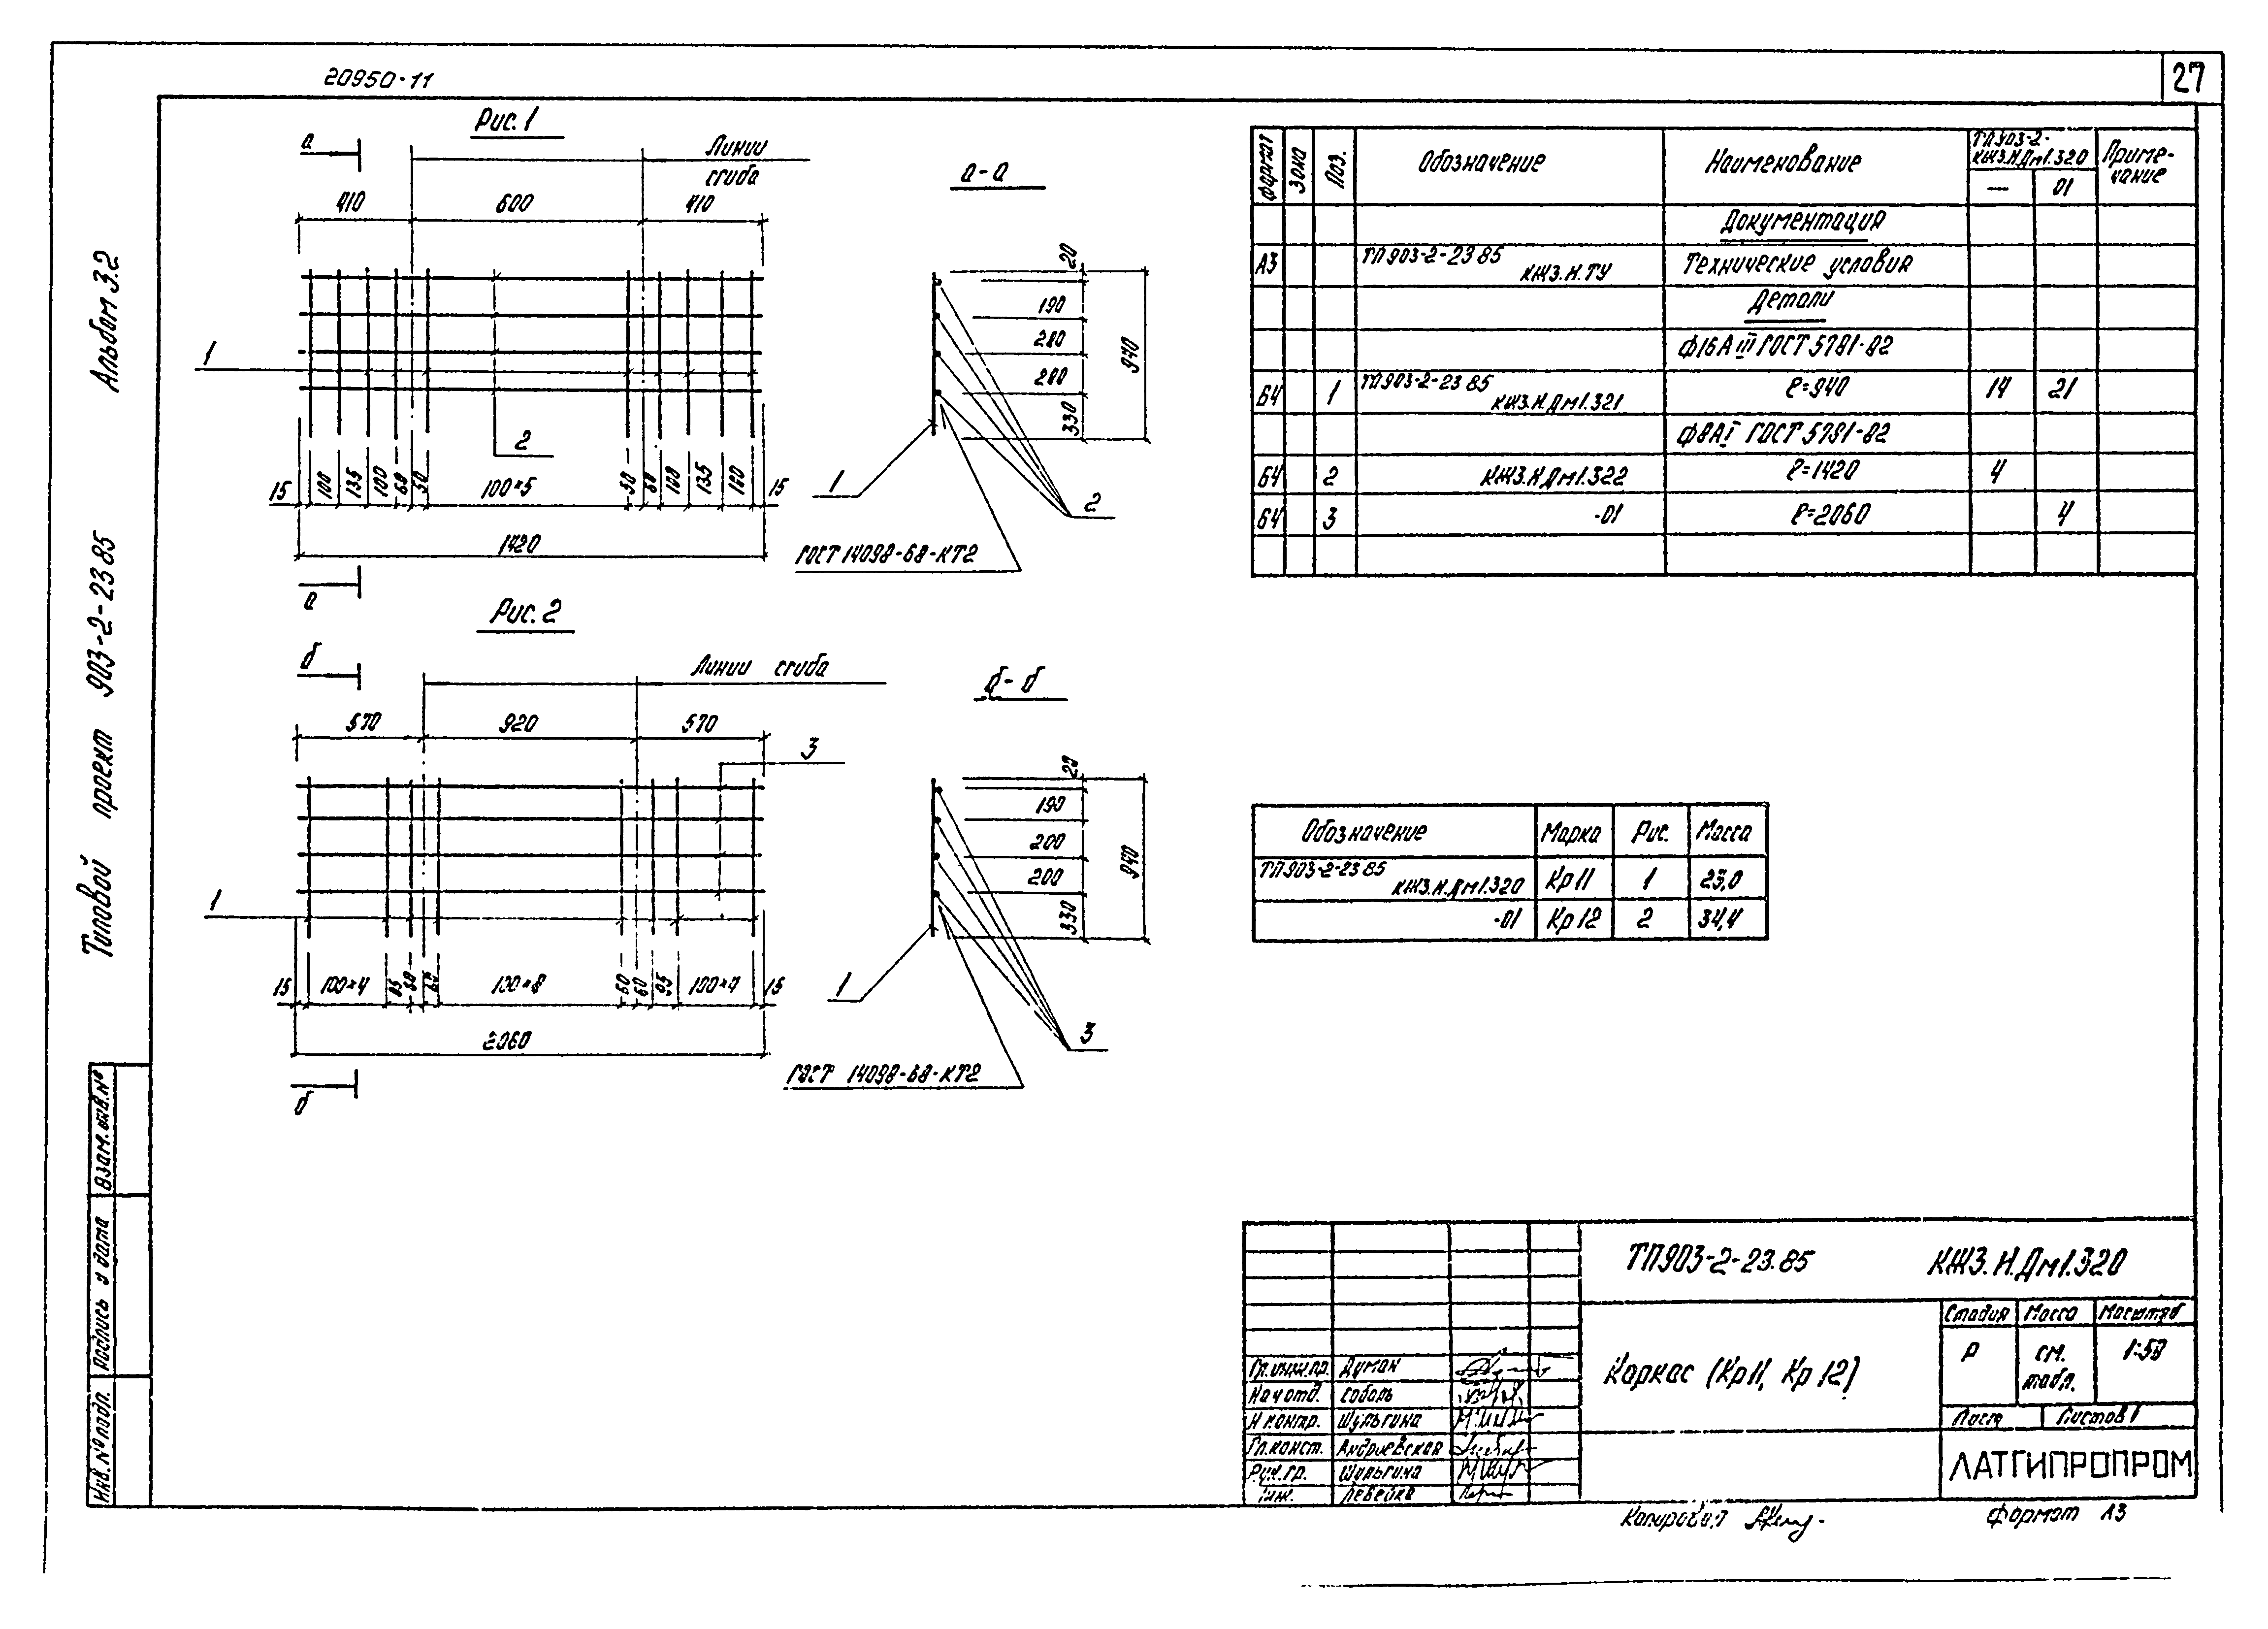 20950-11
27
Альбом 3.2
Типовой проект 903-2-23 85
Рис. 1
а
Линии
сгиба
410 600 410
1
2
15 100 135 100 60 50 100×5 50 60 100 135 100 15
1420
а
а-а
20
190
200
200
330
940
1
2
ГОСТ 14098-68-КТ2
Рис. 2
б
Линии сгиба
570 920 570
3
1
15 100×4 95 60 100×8 60 60 95 100×4 15
2060
б
б-б
20
190
200
200
330
940
1
3
ГОСТ 14098-68-КТ2
Формат Зона Поз. Обозначение Наименование ТП903-2- КЖЗ.И.Дм1.320 Приме-чание
— 01
Документация
А3 ТП903-2-23 85 КЖЗ.И.ТУ Технические условия
Детали
Ф16АIII ГОСТ 5781-82
Б4 1 ТП903-2-23 85 КЖЗ.И.Дм1.321 ℓ=940 14 21
Ф8АI ГОСТ 5781-82
Б4 2 КЖЗ.И.Дм1.322 ℓ=1420 4
Б4 3 -01 ℓ=2060 4
Обозначение Марка Рис. Масса
ТП903-2-23 85 КЖЗ.И.Дм1.320 Кр11 1 23,0
-01 Кр12 2 34,4
ТП903-2-23.85 КЖЗ.И.Дм1.320
Каркас (Кр11, Кр12)
Стадия Масса Масштаб
Р см. табл. 1:50
Лист Листов 1
ЛАТГИПРОПРОМ
Гл.инж.пр. Думан
Нач отд. Соболь
Н контр. Шульгина
Гл.конст. Андриевская
Рук.гр. Шульгина
Инж. Левейка
Взам.инв.№
Подпись и дата
Инв.№ подл.
Копировал
Формат А3